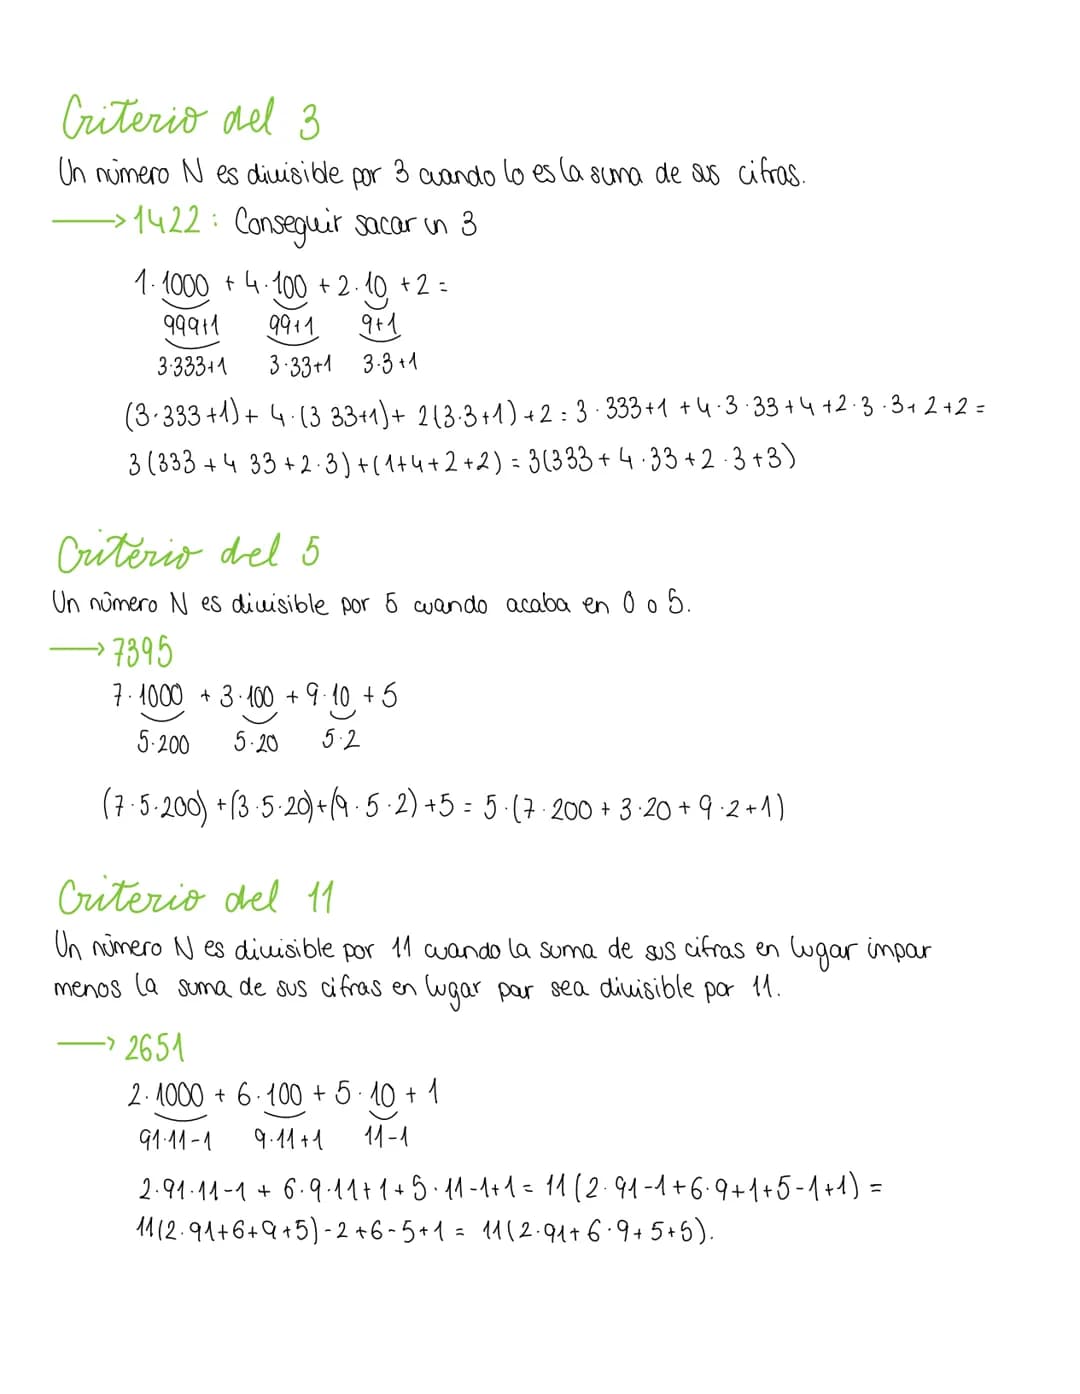 Criterio del 3
Un número N es divisible por 3 cuando lo es la suma de sus cifras.
→ 1422: Conseguir sacar un 3
1·1000 + 4·100 + 2·10 + 2 =
999+1 99+1 9+1
3·333+1 3·33+1 3·3+1
(3·333+1)+ 4·(3 33+1)+ 2(3·3+1)+2 = 3·333+1 +4·3·33+4+2·3·3+2+2 =
3(333+4 33+2·3)+(1+4+2+2) = 3(333+4·33+2·3+3)
Criterio del 5
Un número N es divisible por 5 cuando acaba en 0 o 5.
→ 7395
7·1000 + 3·100 + 9·10 + 5
5·200 5·20 5·2
(7·5·200)+(3·5·20)+(9·5·2)+5 = 5·(7·200+3·20+9·2+1)
Criterio del 11
Un número N es divisible por 11 cuando la suma de sus cifras en lugar impar
menos la suma de sus cifras en lugar par sea divisible por 11.
→ 2651
2·1000 + 6·100 + 5·10 + 1
91·11-1 9·11+1 11-1
2·91·11-1 + 6·9·11+1+5·11-1+1 = 11(2·91-1+6·9+1+5-1+1) =
11(2·91+6+9+5)-2+6-5+1 = 11(2·91+6·9+5+5).